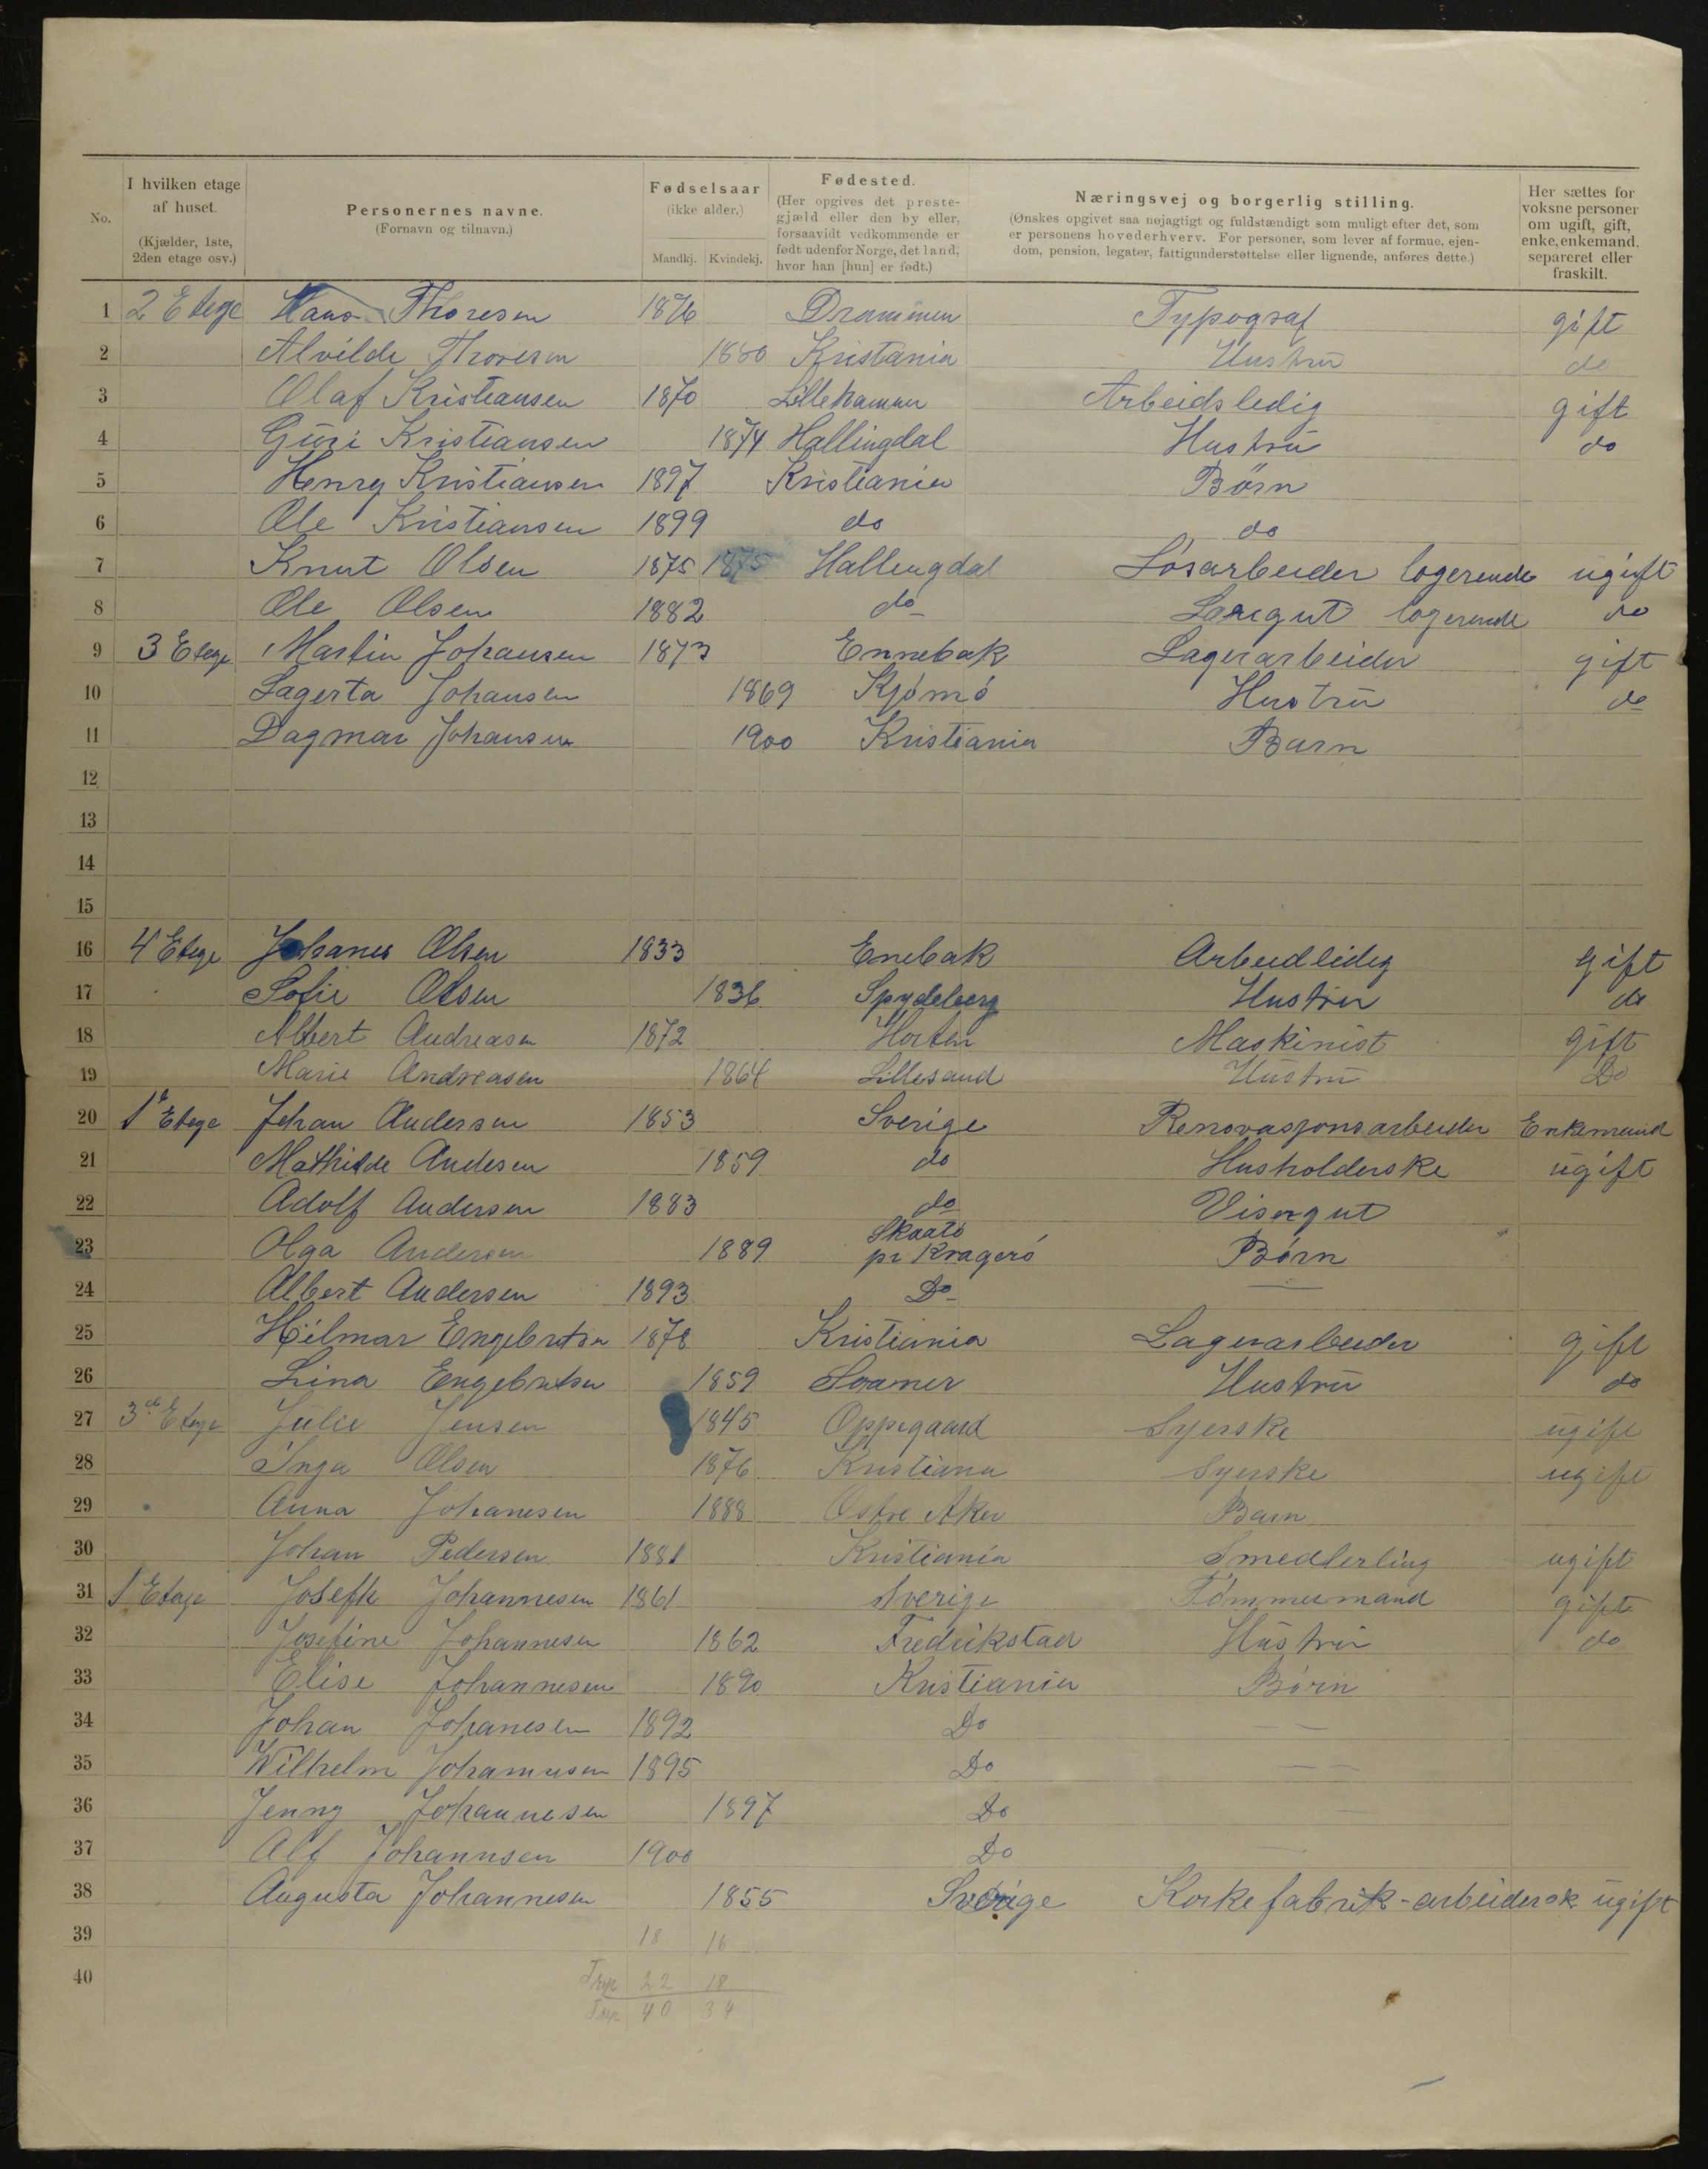 No.
I hvilken etage af huset.
(Kjælder, 1ste, 2den etage osv.)
Personernes navne.
(Fornavn og tilnavn.)
Fødselsaar
(ikke alder.)
Mandkj. Kvindekj.
Fødested.
(Her opgives det prestegjæld eller den by eller, forsaavidt vedkommende er født udenfor Norge, det land, hvor han [hun] er født.)
Næringsvej og borgerlig stilling.
(Ønskes opgivet saa nøjagtigt og fuldstændigt som muligt efter det, som er personens hovederhverv. For personer, som lever af formue, ejendom, pension, legater, fattigunderstøttelse eller lignende, anføres dette.)
Her sættes for voksne personer om ugift, gift, enke, enkemand, separeret eller fraskilt.
1 2 Etege Hans Thoresen 1876 Drammen Typograf gift
2 Alvilde Thoresen 1880 Kristania Hustru do
3 Olaf Kristiansen 1870 Lillehammer Arbeidsledig gift
4 Guri Kristiansen 1874 Hallingdal Hustru do
5 Henry Kristiansen 1897 Kristiania Børn
6 Ole Kristiansen 1899 do do
7 Knut Olsen 1875 1875 Hallingdal Løsarbeider logerende ugift
8 Ole Olsen 1882 do logerende do
9 3 Etege Martin Johansen 1873 Ennebak Lagerarbeider gift
10 Lagerta Johansen 1869 Kjømø Hustru do
11 Dagmar Johansen 1900 Kristiania Barn
12
13
14
15
16 4 Etege Johanes Olsen 1833 Enebak Arbeidledig gift
17 Sofie Olsen 1836 Spydeberg Hustru do
18 Albert Andreasen 1872 Horten Maskinist gift
19 Marie Andreasen 1864 Lillesand Hustru Do
20 1 Etege Johan Andersen 1853 Sverige Renovasjonsarbeider Enkemand
21 Mathilde Andesen 1859 do Husholderske ugift
22 Adolf Andersen 1883 do Visergut
23 Olga Andersen 1889 Skaatø pr Kragerø Børn
24 Albert Andersen 1893 Do —
25 Hilmar Engebretsen 1878 Kristiania Lagerarbeider gift
26 Lina Engebretsen 1859 Soaner Hustru do
27 3de Etege Julie Jensen 1845 Oppegaard Syerske ugift
28 Inga Olsen 1876 Kristiana Syerske ugift
29 Anna Johanesen 1888 Østre Aker Barn
30 Johan Pedersen 1881 Kristiania Smedlerling ugift
31 1 Etage Josefh Johannesen 1861 Sverige Tømmermand gift
32 Josefine Johannesen 1862 Fredrikstad Hustru do
33 Elise Johannesen 1890 Kristiania Børn
34 Johan Johanesen 1892 Do — —
35 Wilhelm Johannesen 1895 Do — —
36 Jenny Johannesen 1897 Do —
37 Alf Johannsen 1900 Do
38 Augusta Johannesen 1855 Sverige Korkefabrik-arbeidersk ugift
39 18 16
40 22 18
40 34